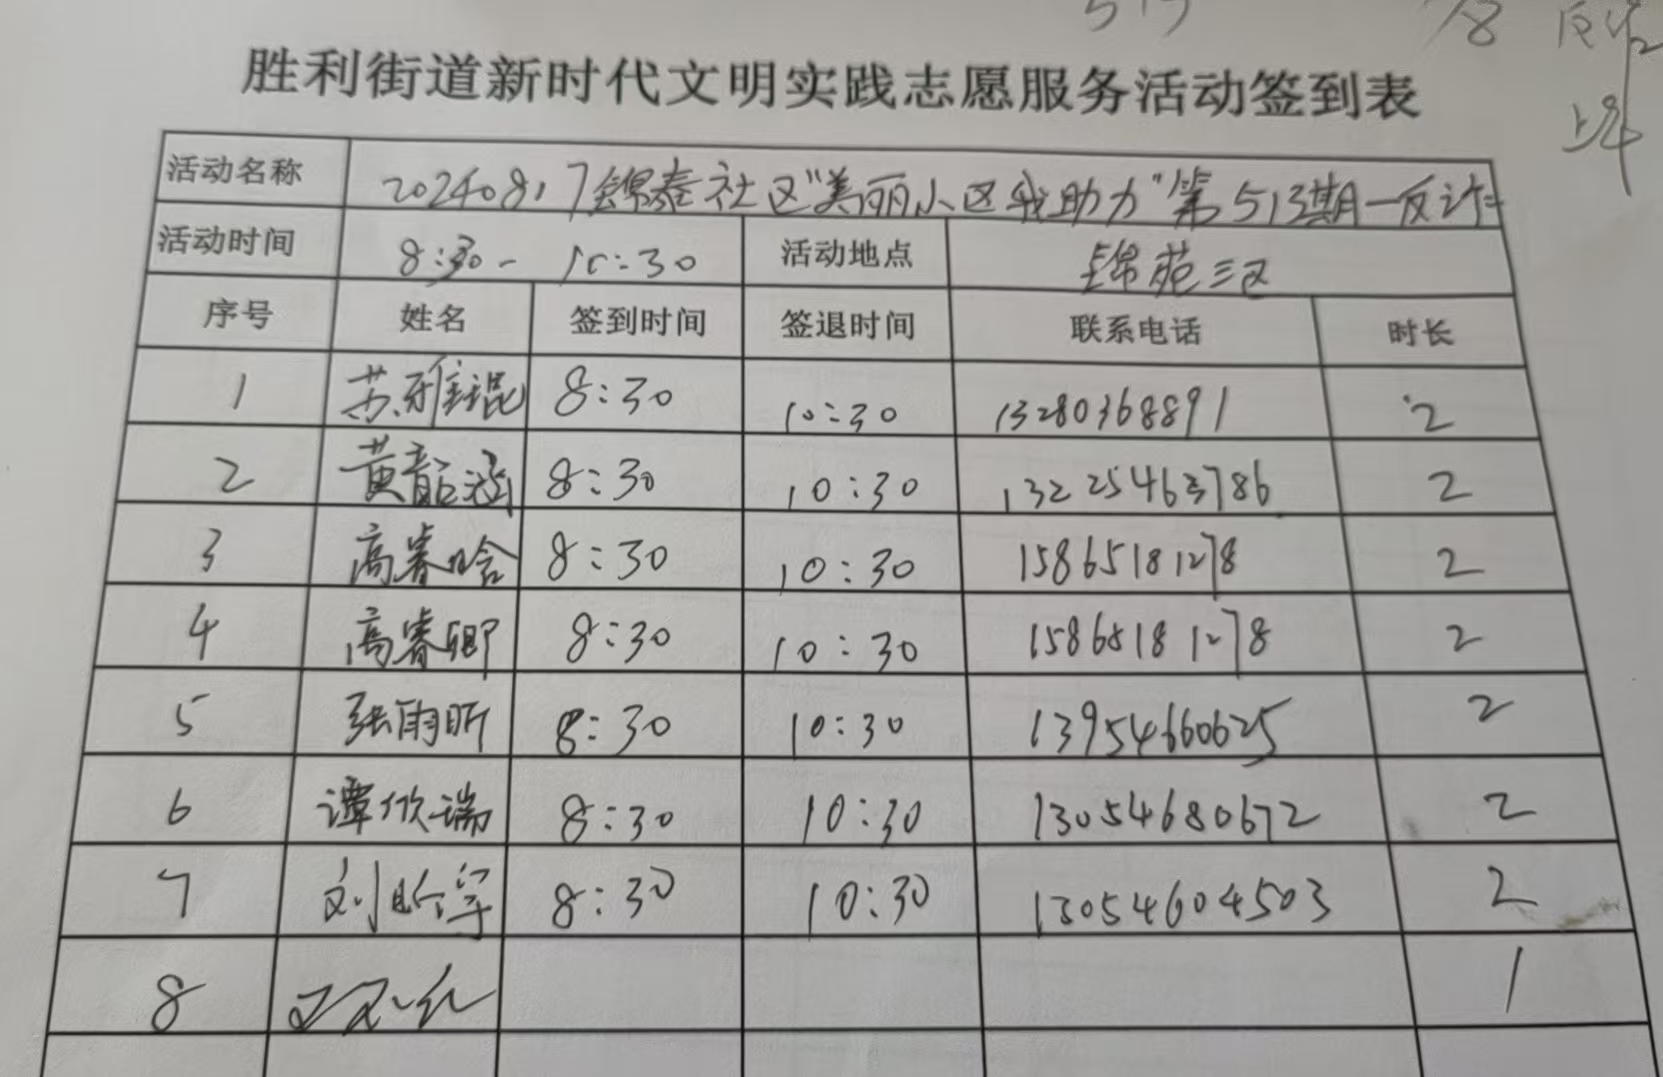 胜利街道新时代文明实践志愿服务活动签到表
活动名称 20240817锦泰社区"美丽小区我助力"第513期一反诈
活动时间 8:30- 10:30 活动地点 锦苑三区
序号 姓名 签到时间 签退时间 联系电话 时长
1 苏雅锟 8:30 10:30 13280368891 2
2 黄韶涵 8:30 10:30 13225463786 2
3 高睿晗 8:30 10:30 15865181278 2
4 高睿卿 8:30 10:30 15865181278 2
5 张雨昕 8:30 10:30 13954660625 2
6 谭欣瑞 8:30 10:30 13054680672 2
7 刘昣宇 8:30 10:30 13054604503 2
8 1